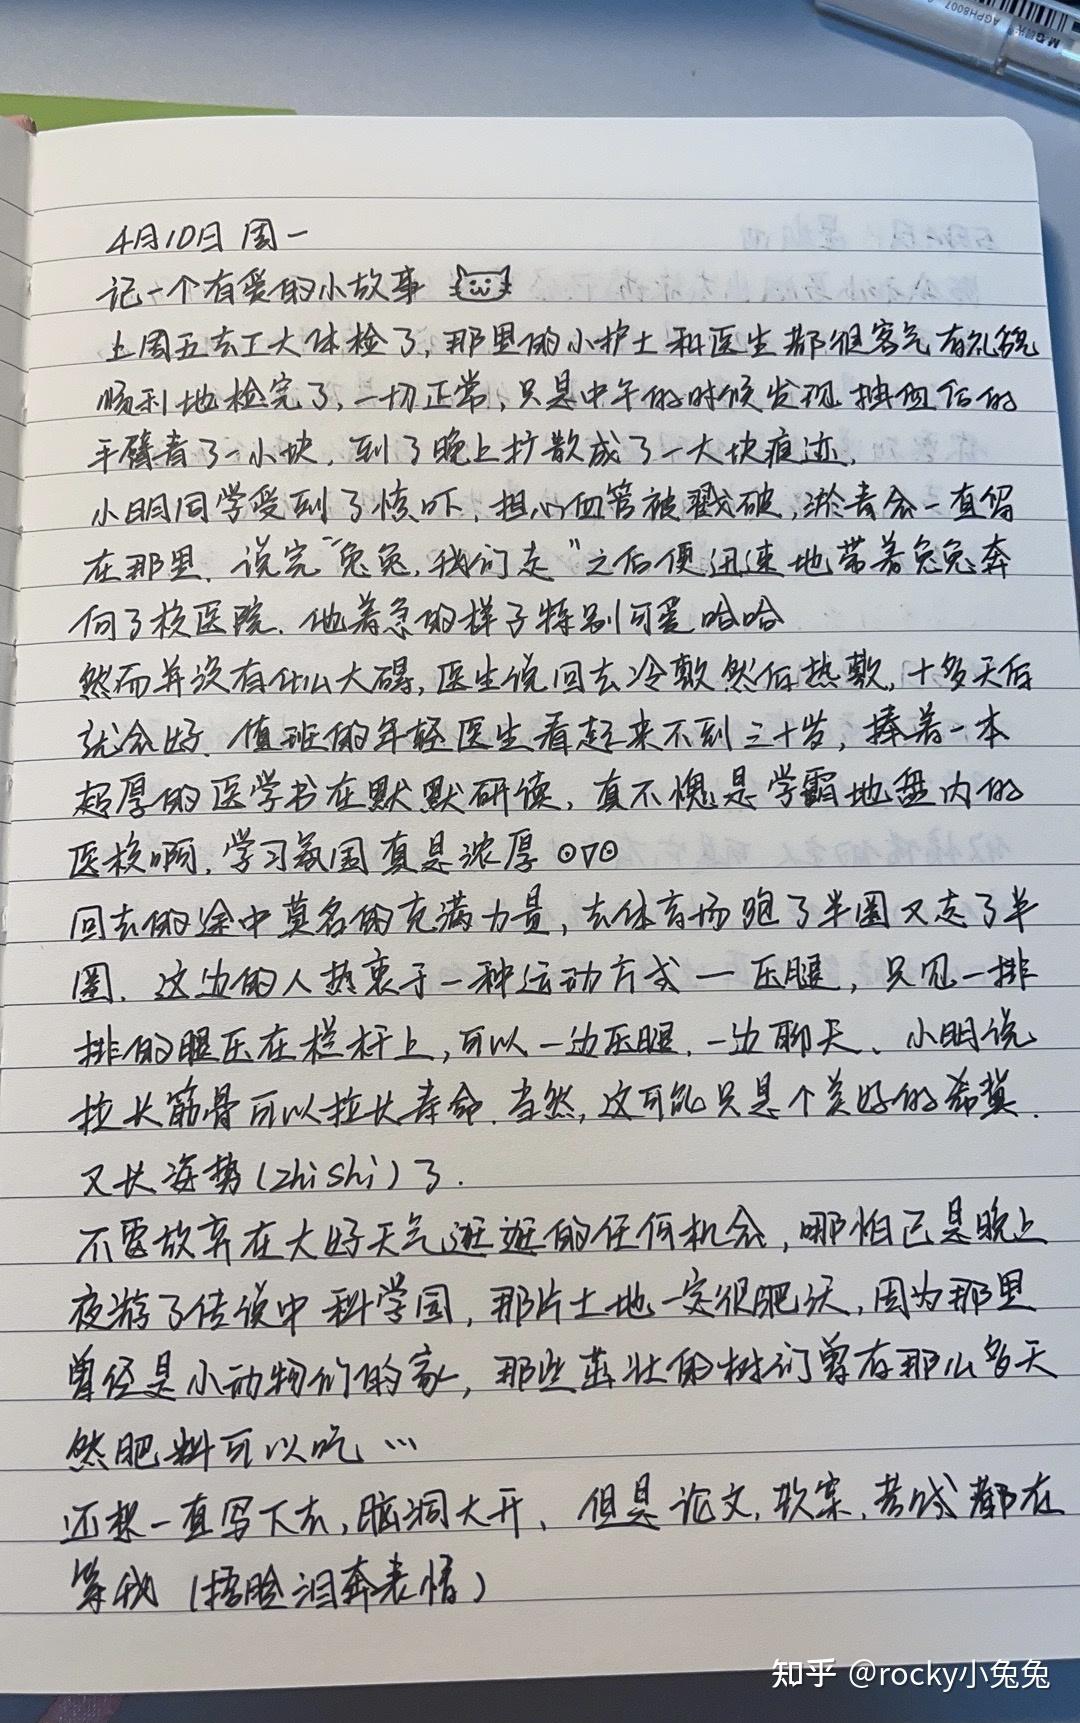 AGPH8007
M&G晨光
4月10日 周一
记一个有爱的小故事
上周五去工大体检了,那里的小护士和医生都很客气有礼貌
顺利地检完了,一切正常,只是中午的时候发现抽血后的
手臂青了一小块,到了晚上扩散成了一大块痕迹.
小明同学受到了惊吓、担心血管被戳破,淤青会一直留
在那里.说完“兔兔,我们走”之后便迅速地带着兔兔奔
向了校医院.他着急的样子特别可爱哈哈
然而并没有什么大碍,医生说回去冷敷然后热敷,十多天后
就会好.值班的年轻医生看起来不到三十岁,捧着一本
超厚的医学书在默默研读,真不愧是学霸地盘内的
医校啊.学习氛围真是浓厚⊙▽⊙
回去的途中莫名的充满力量,去体育场跑了半圈又走了半
圈.这边的人热衷于一种运动方式—压腿,只见一排
排的腿压在栏杆上,可以一边压腿.一边聊天、小明说
拉长筋骨可以拉长寿命.当然,这可能只是个美好的希冀.
又长姿势(zhishi)了.
不要放弃在大好天气逛逛的任何机会,哪怕已是晚上
夜游了传说中科学园,那片土地一定很肥沃,因为那里
曾经是小动物们的家,那些茁壮的树们曾有那么多天
然肥料可以吃…
还想一直写下去,脑洞大开、但是论文,教案,考试都在
等我(捂脸泪奔表情)
知乎 @rocky小兔兔